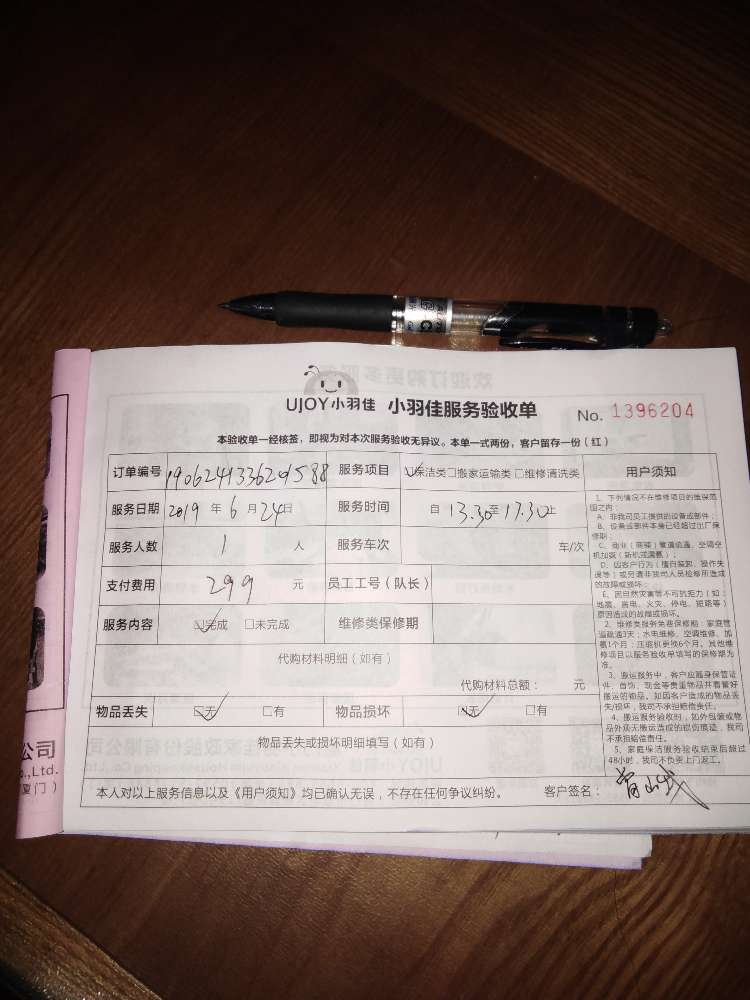 UJOY小羽佳 小羽佳服务验收单 No. 1396204
本验收单一经核签，即视为对本次服务验收无异议。本单一式两份，客户留存一份（红）
订单编号 服务项目 ☑保洁类□搬家运输类□维修清洗类 用户须知
服务日期 2019 年 6 月 24日 服务时间 自 13.30至17.30止
服务人数 1 人 服务车次 车/次
支付费用 299 元 员工工号（队长）
服务内容 ☑完成 □未完成 维修类保修期
代购材料明细（如有）
代购材料总额： 元
物品丢失 ☑无 □有 物品损坏 ☑无 □有
物品丢失或损坏明细填写（如有）
本人对以上服务信息以及《用户须知》均已确认无误，不存在任何争议纠纷。 客户签名：
1、下列情况不在维修项目的维保范
围之内：
A、非我司员工提供的设备或部件；
B、设备或部件本身已经超过出厂保
修期；
C、商业（商铺）管道疏通、空调空
机加氨（新机或漏氨）；
D、因客户行为（擅自装卸、操作失
误等）或另请非我司人员检修所造成
的故障或损坏；
E、因自然灾害等不可抗拒力（如：
地震、雷电、火灾、停电、短路等）
原因造成的故障或损坏。
2、维修类服务免费保修期：家庭管
道疏通3天；水电维修、空调维修、加
氨1个月；压缩机更换6个月。其他维
修项目以服务验收单填写的保修期为
准。
3、搬运服务中，客户应随身保管证
件、首饰、现金等贵重物品并看管好
搬运的物品。如因客户造成的物品丢
失/损坏，我司不承担赔偿责任。
4、搬运服务验收时，如外包装或物
品外观无搬运造成的损伤痕迹，我司
不承担赔偿责任。
5、家庭保洁服务验收结束后超过
48小时，我司不负责上门返工。
公司
o.,Ltd.
厦门）